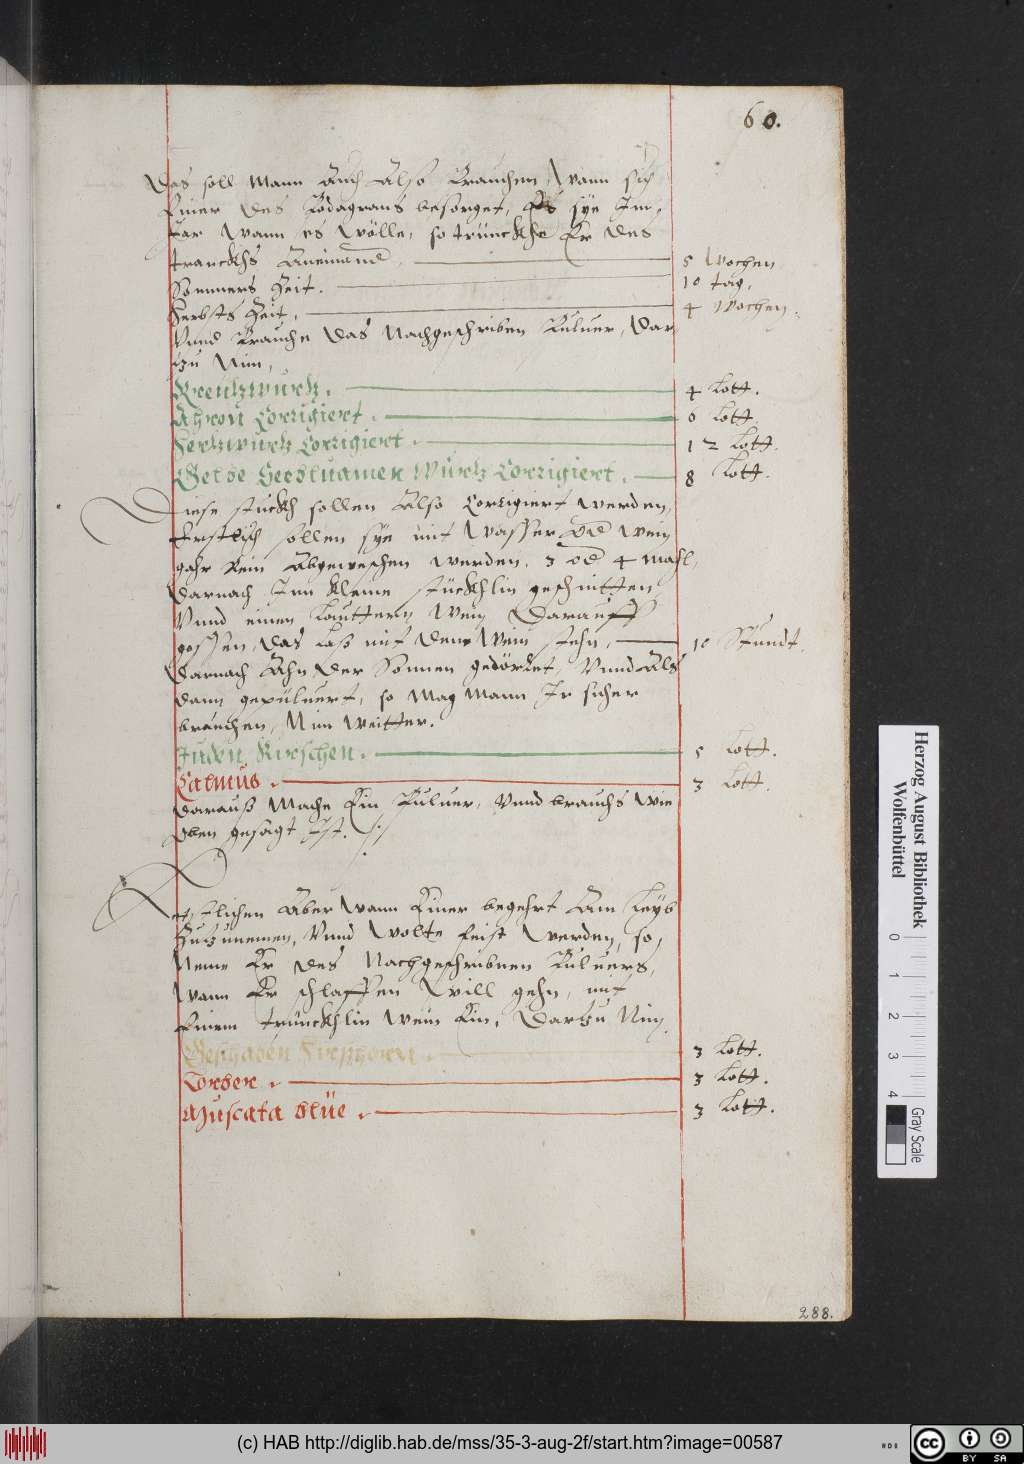 60.
Das soll Mann Auch Also Brauchen, Wann sich
Einer des Podagrams besorget, Es sye Im
Jar Wann es Wölle, so trünckhe Er des
tranckhs Aneinand 5 Wochen
Sommers Zeit. 10 tag.
Herbsts Zeit. 4 Wochen.
Vnnd Brauche das Nachgeschriben Puluer, Dar
zu Nim,
Kreutzwurtz. 4 Lott.
Aaron Corrigiert. 6 Lott.
Corrigiert. 12 Lott.
Gelbe Seebluamen Wurtz Corrigiert. 8 Lott.
Diese stuckh sollen Also Corrigiert werden,
Erstlich sollen sye mit Wasser od Wein
gahr Rein Abgeweschen werden, 3 od 4 mahl,
Darnach Inn kleine stückhlin geschnitten
Vnnd einen Lauttern Wein Darauff
gossen, das Laß mit dem Wein stehn, 10 Stundt.
Darnach Ahn der Sonnen gedörret Vnnd Als
dann gepüluert, so Mag Mann Ir sicher
brauchen, Nim Weitter.
Juden Kirschen. 5 Lott.
Calmus. 3 Lott.
Darauß Mache Ein Puluer, Vnnd brauchs Wie
Oben gesagt Ist.
Letstlichen Aber Wann Einer begehrt Am Leyb
Zuzunemen, Vnnd Wolte feist Werden, so,
Neme Er des Nachgeschribnen Puluers,
Wann Er schlaffen Will gehn, mit
Einem trünckhlin Wein Ein, Dartzu Nim,
Geschaben Hirschhorn. 3 Lott.
Lorber. 3 Lott.
Muscata blüe. 3 Lott.
288.
Herzog August Bibliothek
Wolfenbüttel
0 1 2 3 4
Gray Scale
(c) HAB http://diglib.hab.de/mss/35-3-aug-2f/start.htm?image=00587
cc BY SA